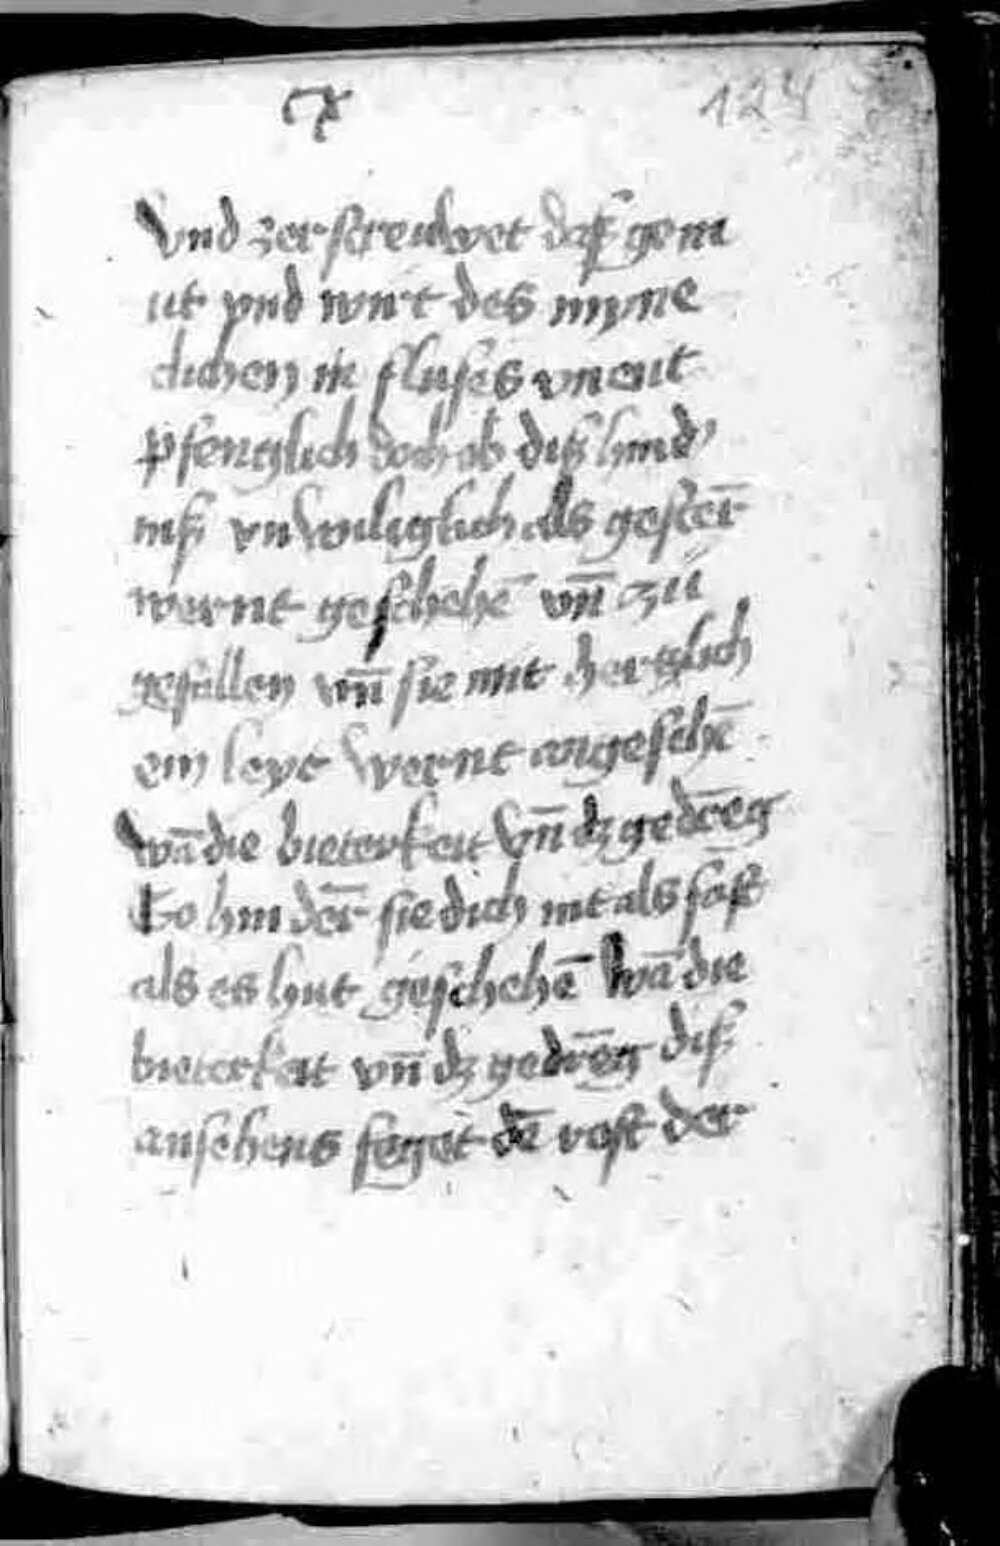 cx 124
Vnd zerstreuwet daß gem
ut vnd wirt des mynne
clichen in fluses vnent
pfenglich doch ob diß hind'
niß vnwilliglich als gester̄
wernt geschehē vn̄ zü
gefallen vn̄ sie mit hertzlich
em leyt wernt angesehē
Wā die bieterkeit vn̄ dz gedrēg
So hindert sie dich nit als fast
als es hut geschehē wā die
bieterkeit vn̄ dz gedrēg diß
ansehens feget dē rost der